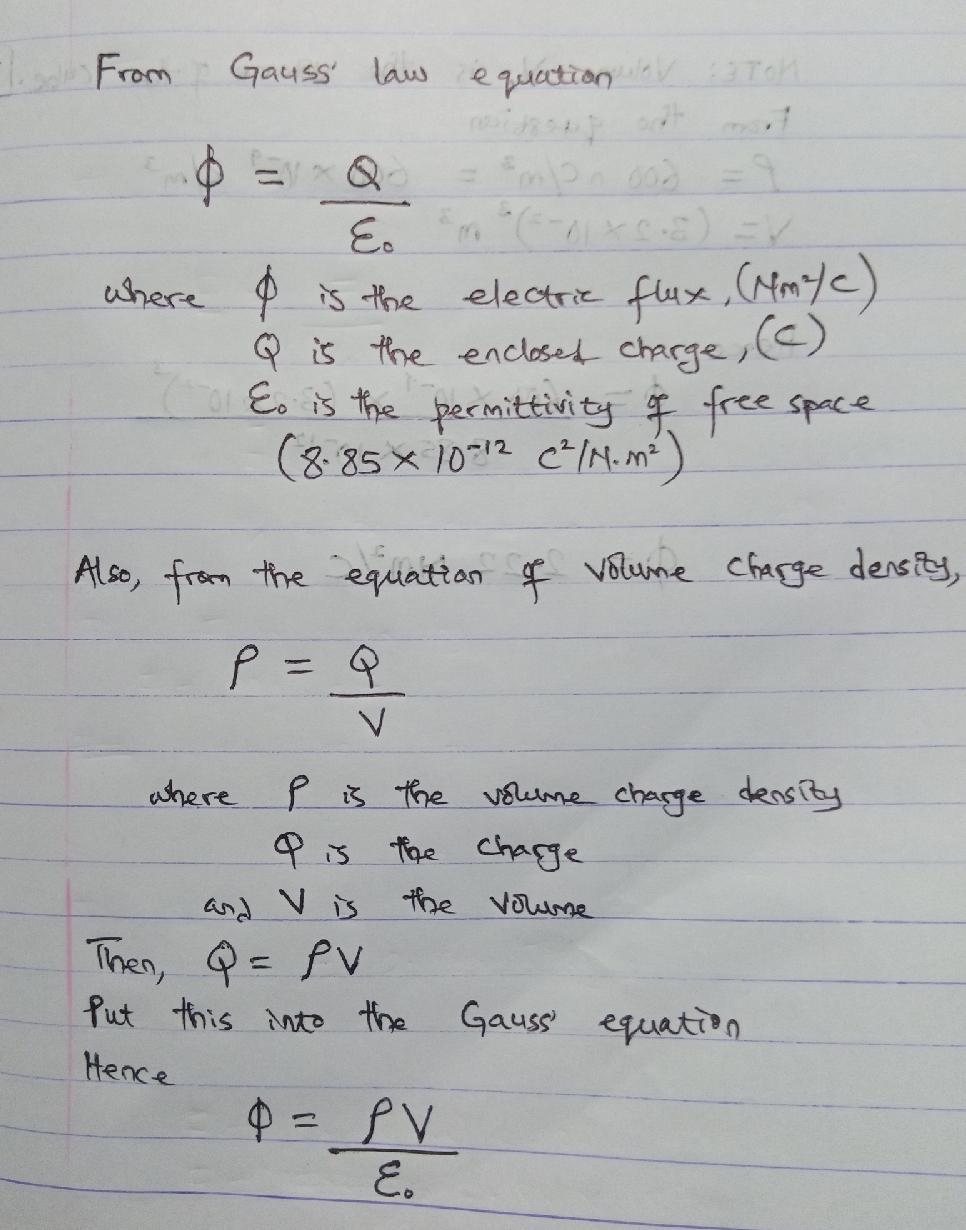 From Gauss' law equation
ϕ = Q
ε₀
where ϕ is the electric flux, (Nm²/C)
Q is the enclosed charge, (C)
ε₀ is the permittivity of free space
(8.85 × 10⁻¹² C²/N.m²)
Also, from the equation of volume charge density,
ρ = Q
V
where ρ is the volume charge density
Q is the charge
and V is the volume
Then, Q = ρV
Put this into the Gauss' equation
Hence
ϕ = ρV
ε₀